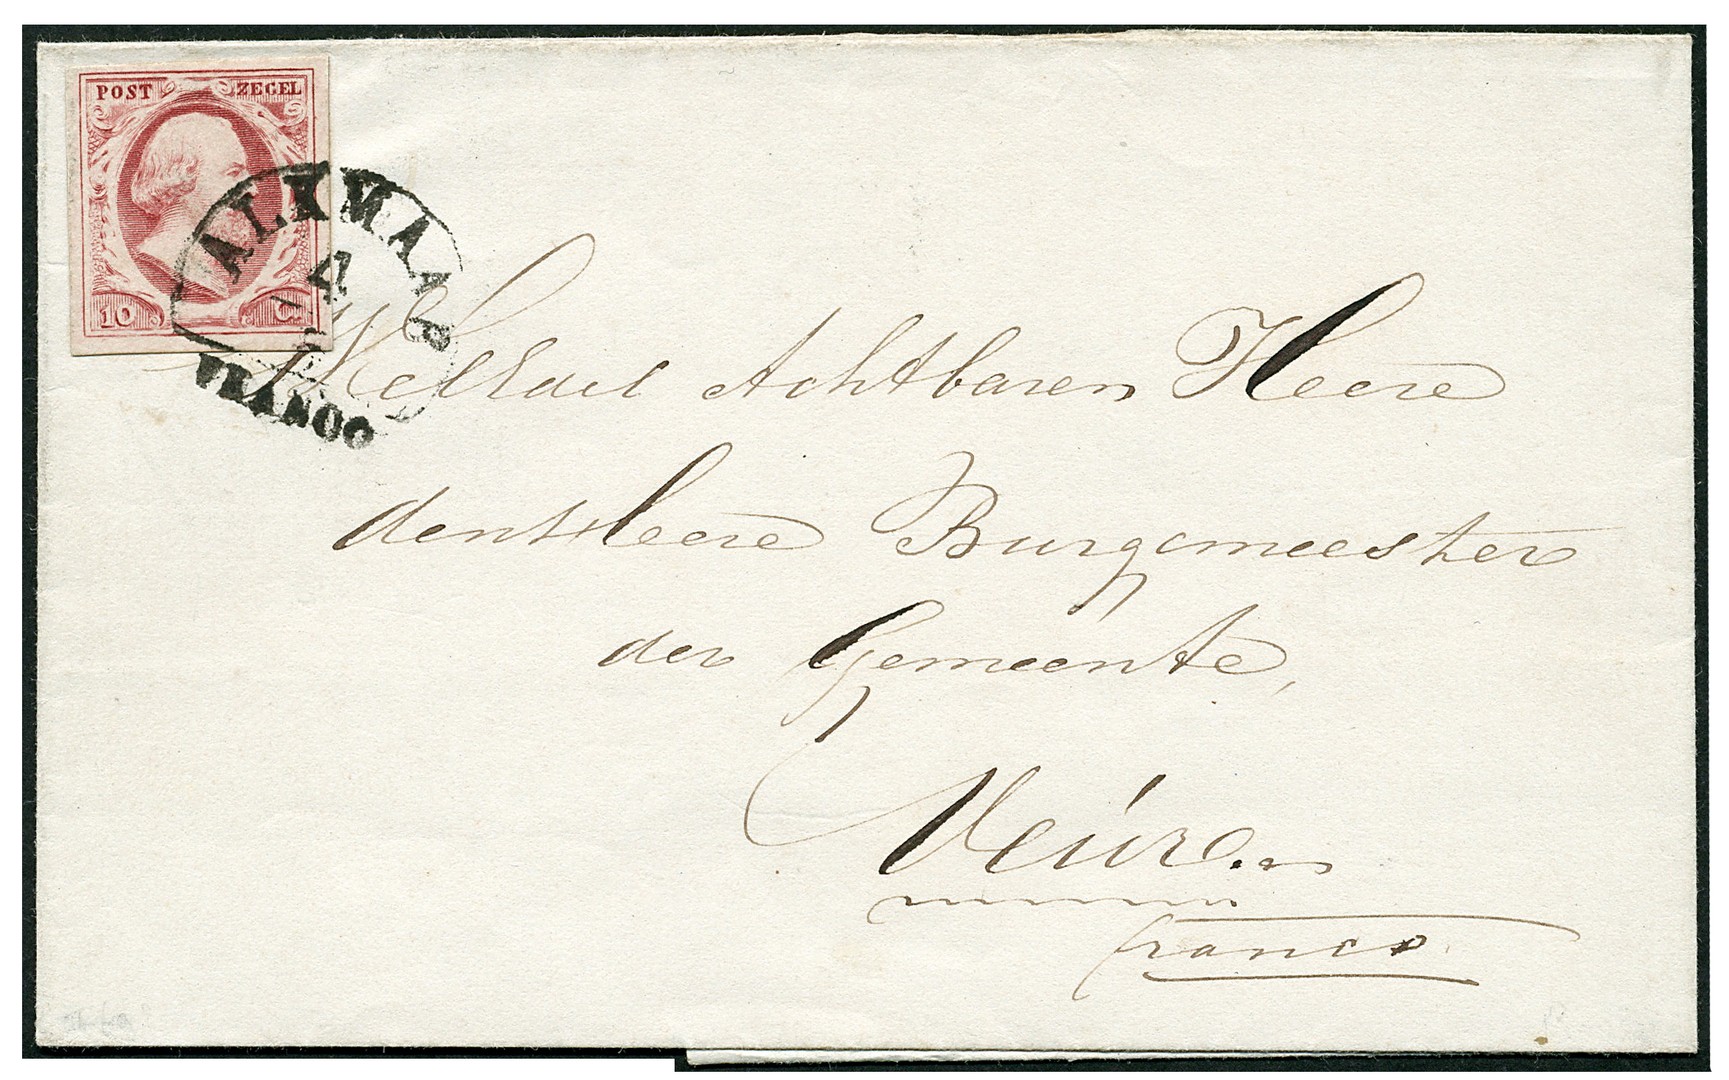 POST ZEGEL
10 Ct
ALKMAAR
4
FRANCO
WelEdel Achtbaren Heere
den Heere Burgemeester
der Gemeente,
franco